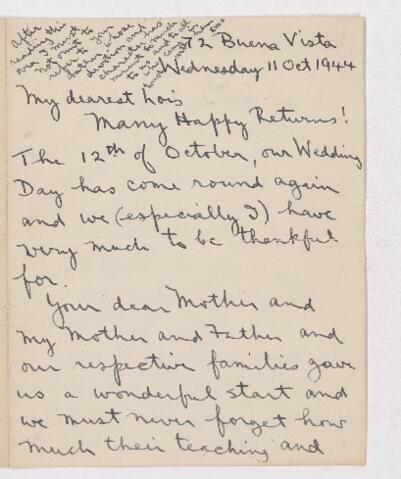 After
reading this
over I must to
not omit
refer to your
Father whose
devotion and his
character
meant to and to all
to us
72 Buena Vista
Wednesday 11 Oct 1944
My dearest Lois
Many Happy Returns!
The 12th of October, our Wedding
Day has come round again
and we (especially I) have
very much to be thankful
for.
Your dear Mother and
my Mother and Father and
our respective families gave
us a wonderful start and
we must never forget how
much their teaching and